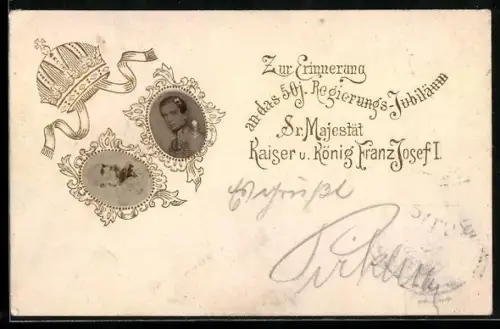 Zur Erinnerung
an das 50j. Regierungs-Jubiläum
Sr. Majestät
Kaiser u. König Franz Josef I.